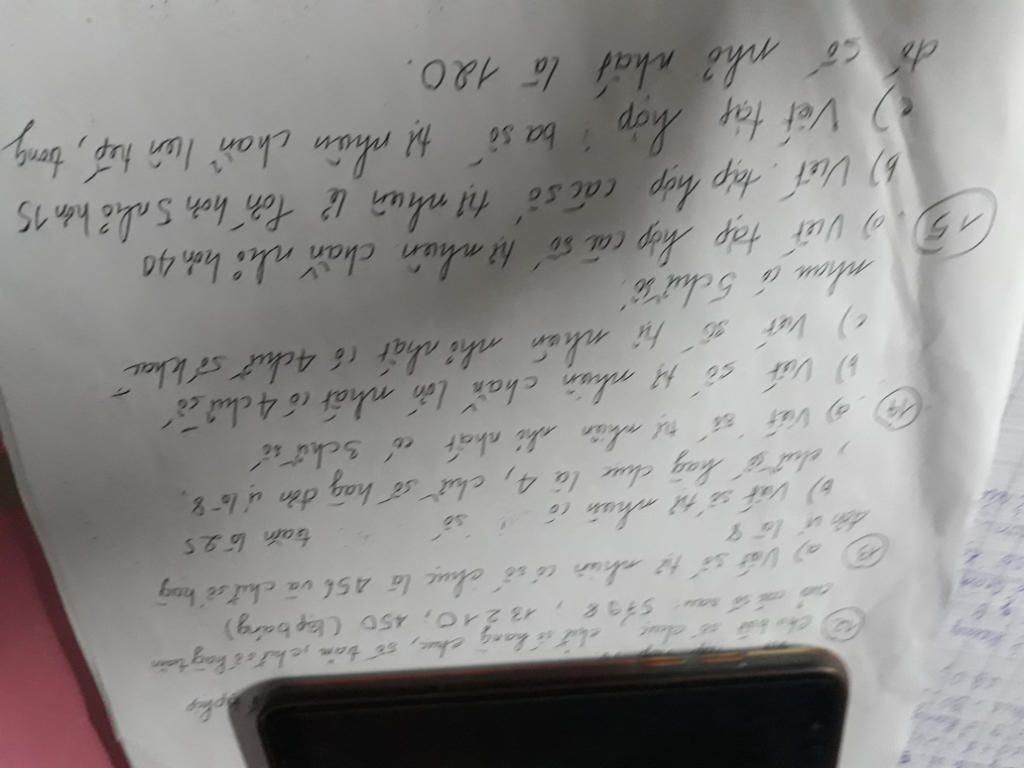 (12) Cho biết số chục, chữ số hàng chục, số trăm, chữ số hàng trăm
của các số sau: 5798, 13210, 450 (lập bảng)
(13) a) Viết số tự nhiên có số chục là 456 và chữ số hàng
đơn vị là 8
b) Viết số tự nhiên có số trăm là 25
, chữ số hàng chục là 4, chữ số hàng đơn vị là 8.
(14) a) Viết số tự nhiên nhỏ nhất có 3 chữ số
b) Viết số tự nhiên chẵn lớn nhất có 4 chữ số
c) Viết số tự nhiên nhỏ nhất có 4 chữ số khác
nhau có 5 chữ số.
(15) a) Viết tập hợp các số tự nhiên chẵn nhỏ hơn 40
b) Viết tập hợp các số tự nhiên lẻ lớn hơn 5 nhỏ hơn 15
c) Viết tập hợp ba số tự nhiên chẵn liên tiếp, trong
đó số nhỏ nhất là 120.